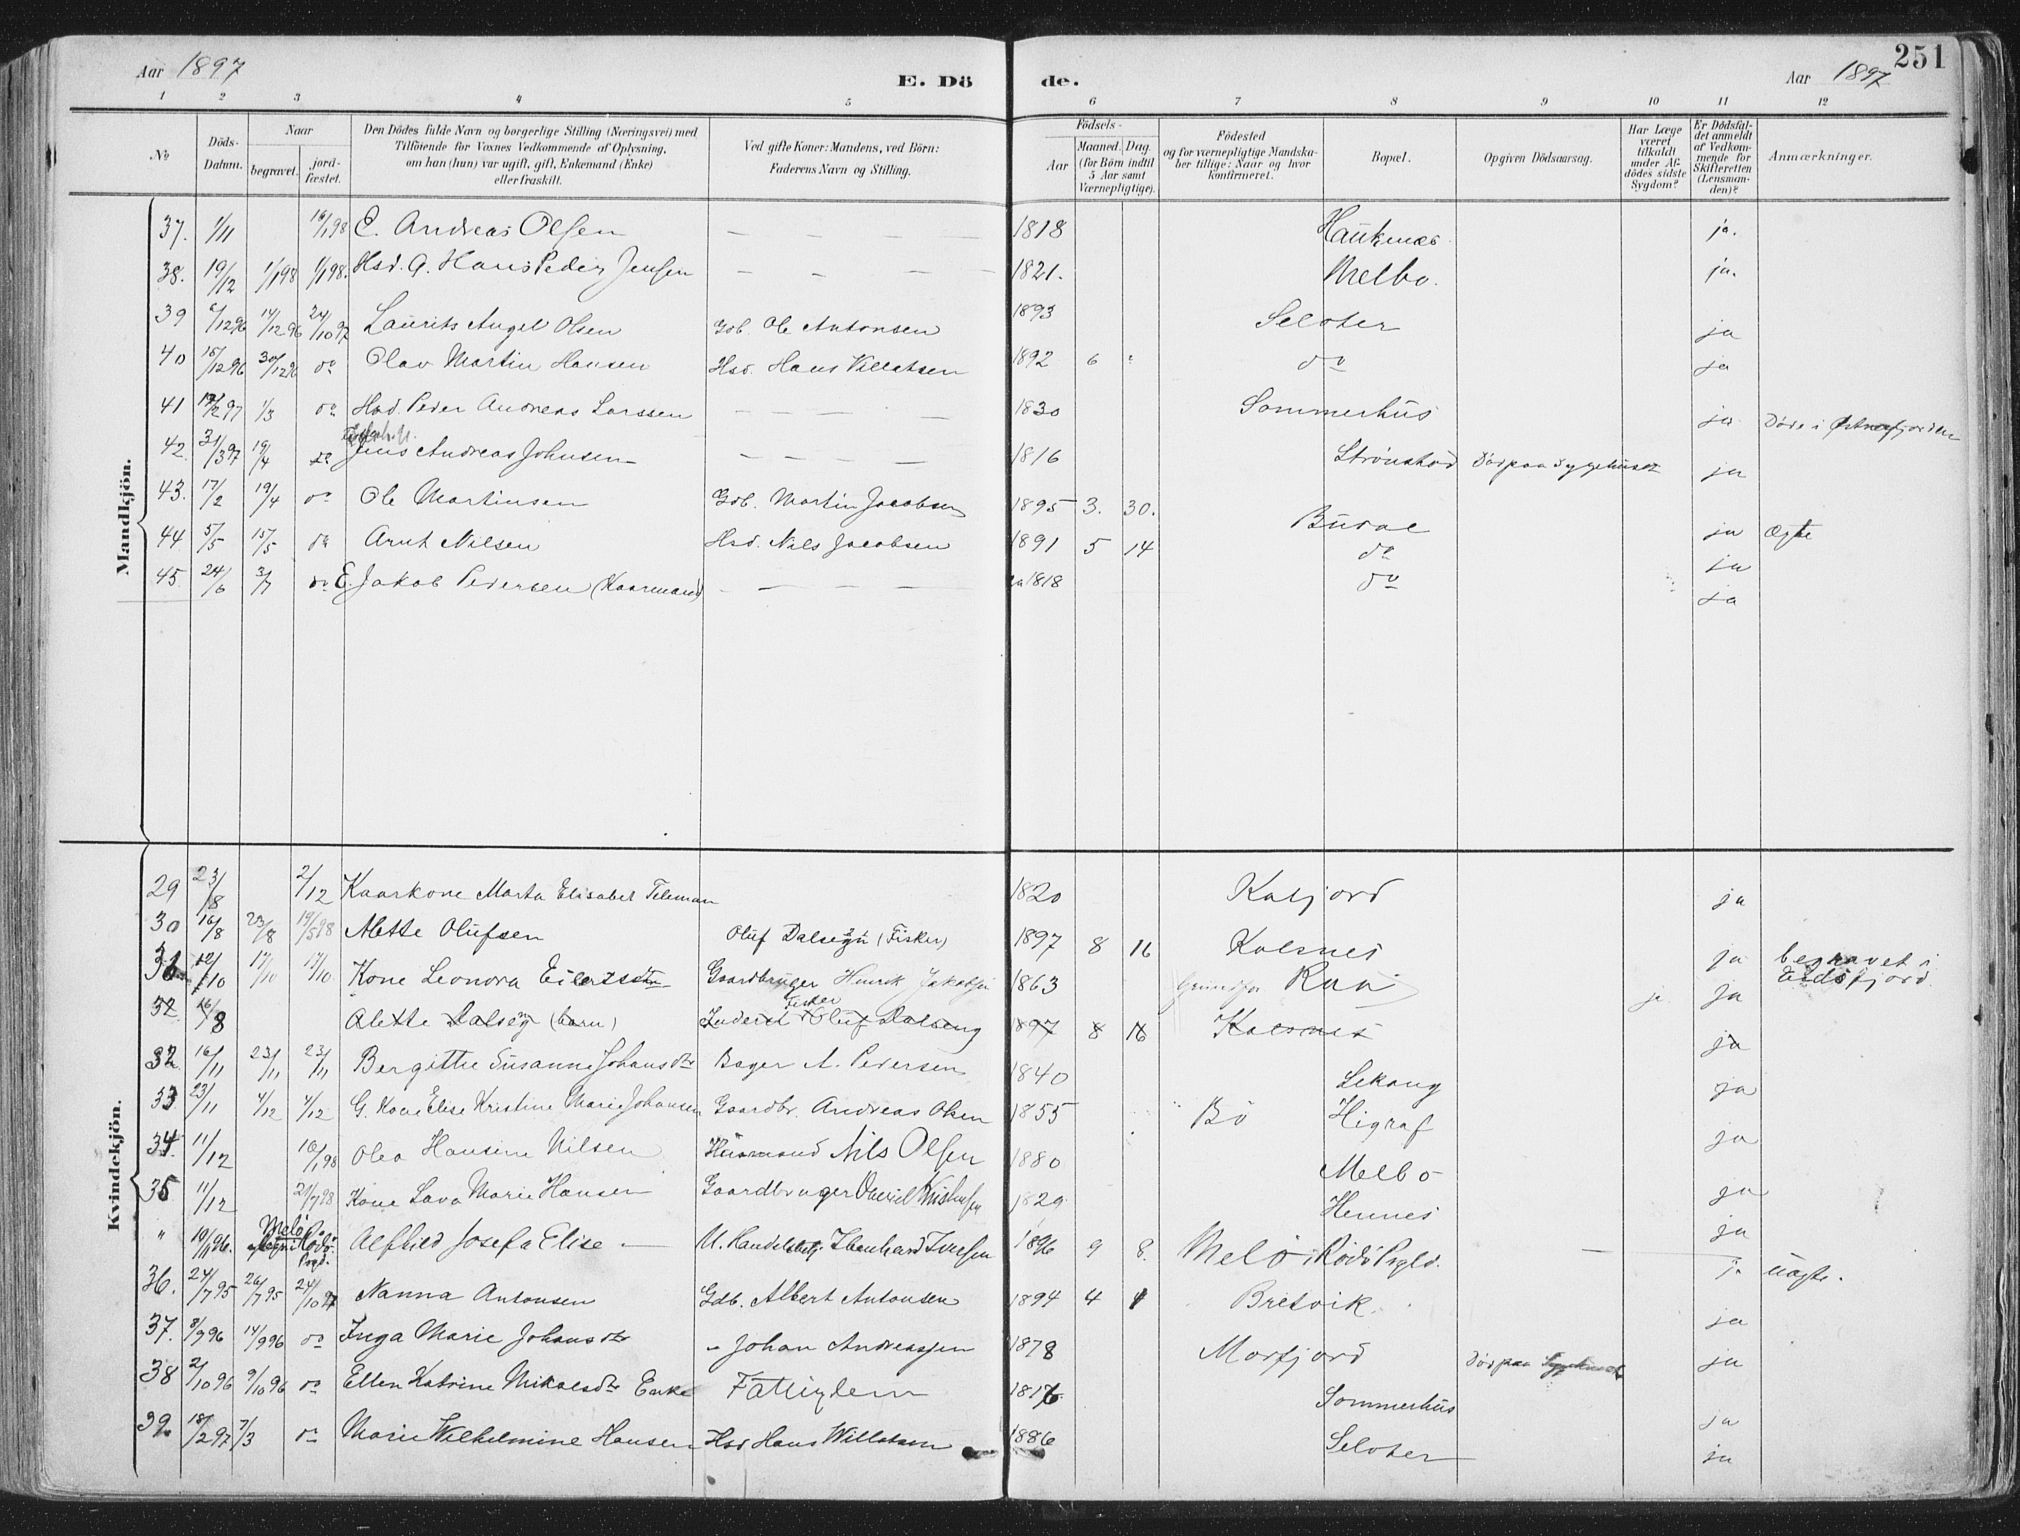 251
Aar 1897
E. Dö de.
Aar 1897
1 2 3 4 5 6 7 8 9 10 11 12
No
Döds-Datum.
Naar
begravet.
jord-fæstet.
Den Dödes fulde Navn og borgerlige Stilling (Næringsvei) med
Tilföiende for Voxnes Vedkommende af Oplysning,
om han (hun) var ugift, gift, Enkemand (Enke)
eller fraskilt.
Ved gifte Koner: Mandens, ved Börn:
Faderens Navn og Stilling.
Födsels-
Aar
Maaned. Dag.
(for Börn indtil
5 Aar samt
Værnepligtige).
Födested
og for værnepligtige Mandska-
ber tillige: Naar og hvor
konfirmeret.
Bopæl.
Opgiven Dödsaarsag.
Har Læge
været
tilkaldt
under Af-
dödes sidste
Sygdom?
Er Dödsfal-
det anmeldt
af Vedkom-
mende for
Skifteretten
(Lensman-
den)?
Anmærkninger.
Mandkjön.
37. 1/11 16/1 98 E. Andreas Olsen — — — — 1818 Haukenæs ja.
38. 19/12 1/1 98 1/1 98. Hsd. G. Hans Peder Jensen — — — 1821. Melbo. ja.
39 6/12 96 14/12 96 24/10 97 Laurits Angel Olsen Gdb. Ole Antonsen 1893 Seloter ja
40 15/12 96 30/12 96 do Olav Martin Hansen Hsd. Hans Villatsen 1892 6 do ja
41 /2 97 1/3 do Hsd. Peder Andreas Larssen — — — — 1830 Sommerhus ja Döde i Østnesfjorden
42. 31/3 97 19/4 do Jens Andreas Johnsen — — — — 1816 Strönstad Död paa Sygehuset ja
43. 17/2 19/4 do Ole Martinsen Gdb. Martin Jacobsen 1895 3. 30. Budal ja Ægte
44 5/5 15/5 do Arnt Nilsen Hsd. Nils Jacobsen 1891 5 14 do ja
45. 24/6 3/7 do E. Jakob Pedersen (Kaarmand) — — — — ca 1818 do ja
Kvindekjön.
29 23/8 2/12 Kaarkone Marta Elisabet Teleman 1820 Kalfjord ja
30 16/8 23/8 19/5 98 Alette Olufsen Oluf Dalseng (Fisker) 1897 8 16 Kalsnes ja begravet i Eidsfjord
31 12/10 17/10 17/10 Kone Leonora Eilertsdtr Gaardbruger Henrik Jakobsen 1863 Grundfør Raa ja ja
32 16/8 Alette Dalseg (barn) Inderst Fisker Oluf Dalseng 1897 8 16 Kalsnes ja
32 16/11 23/11 23/11 Bergitte Susanne Johansdtr Bager A. Pedersen 1840 Lekang ja
33 23/11 4/12 4/12 G. Kone Elise Kristine Marie Johansen Gaardbr. Andreas Olsen 1855 Bö Higraf ja
34. 11/12 16/1 98 Olea Hansine Nilsen Husmand Nils Olsen 1880 Melbo ja
35 11/12 21/7 98 Kone Lava Marie Hansen Gaardbruger David 1829 Hennes ja
" 19/1 96. Melö Rödö Prgld. Alfhild Josefa Elise — U. Handelsbetj. Ebenhard Iversen 1896 9 8. Melö i Rödö Prgld. — ja uægte.
36. 24/7 95 26/7 95 24/10 97 Nanna Antonsen Gdb. Albert Antonsen 1894 4 1 Bretvik ja
37. 8/9 96 14/9 96 do Inga Marie Johansdtr " Johan Andreassen 1878 Morfjord Död paa Sygehuset ja
38 2/10 96 9/10 96 do Ellen Katrine Mikalsdtr Enke Fattiglem 1816 Sommerhus ja
39. 18/2 97 7/3 do Marie Wilhelmine Hansen Hsd Hans Willatsen 1886 Seloter ja